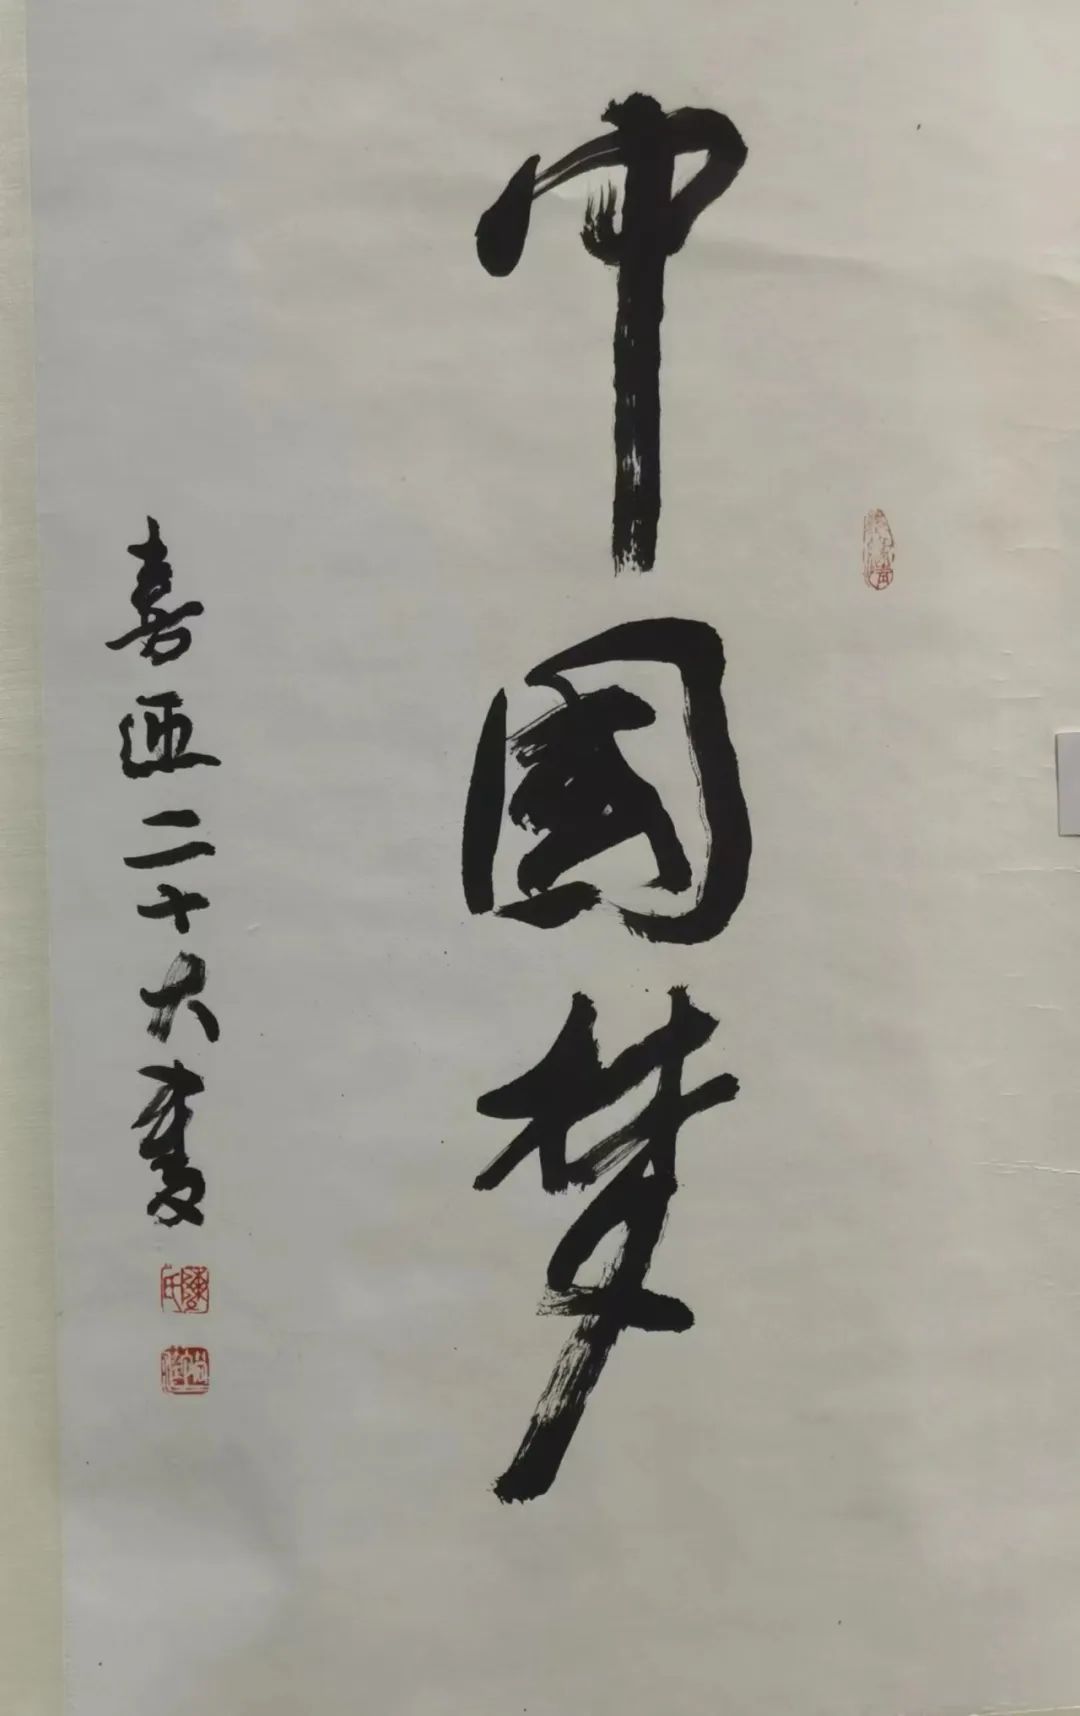 中国梦
喜迎二十大